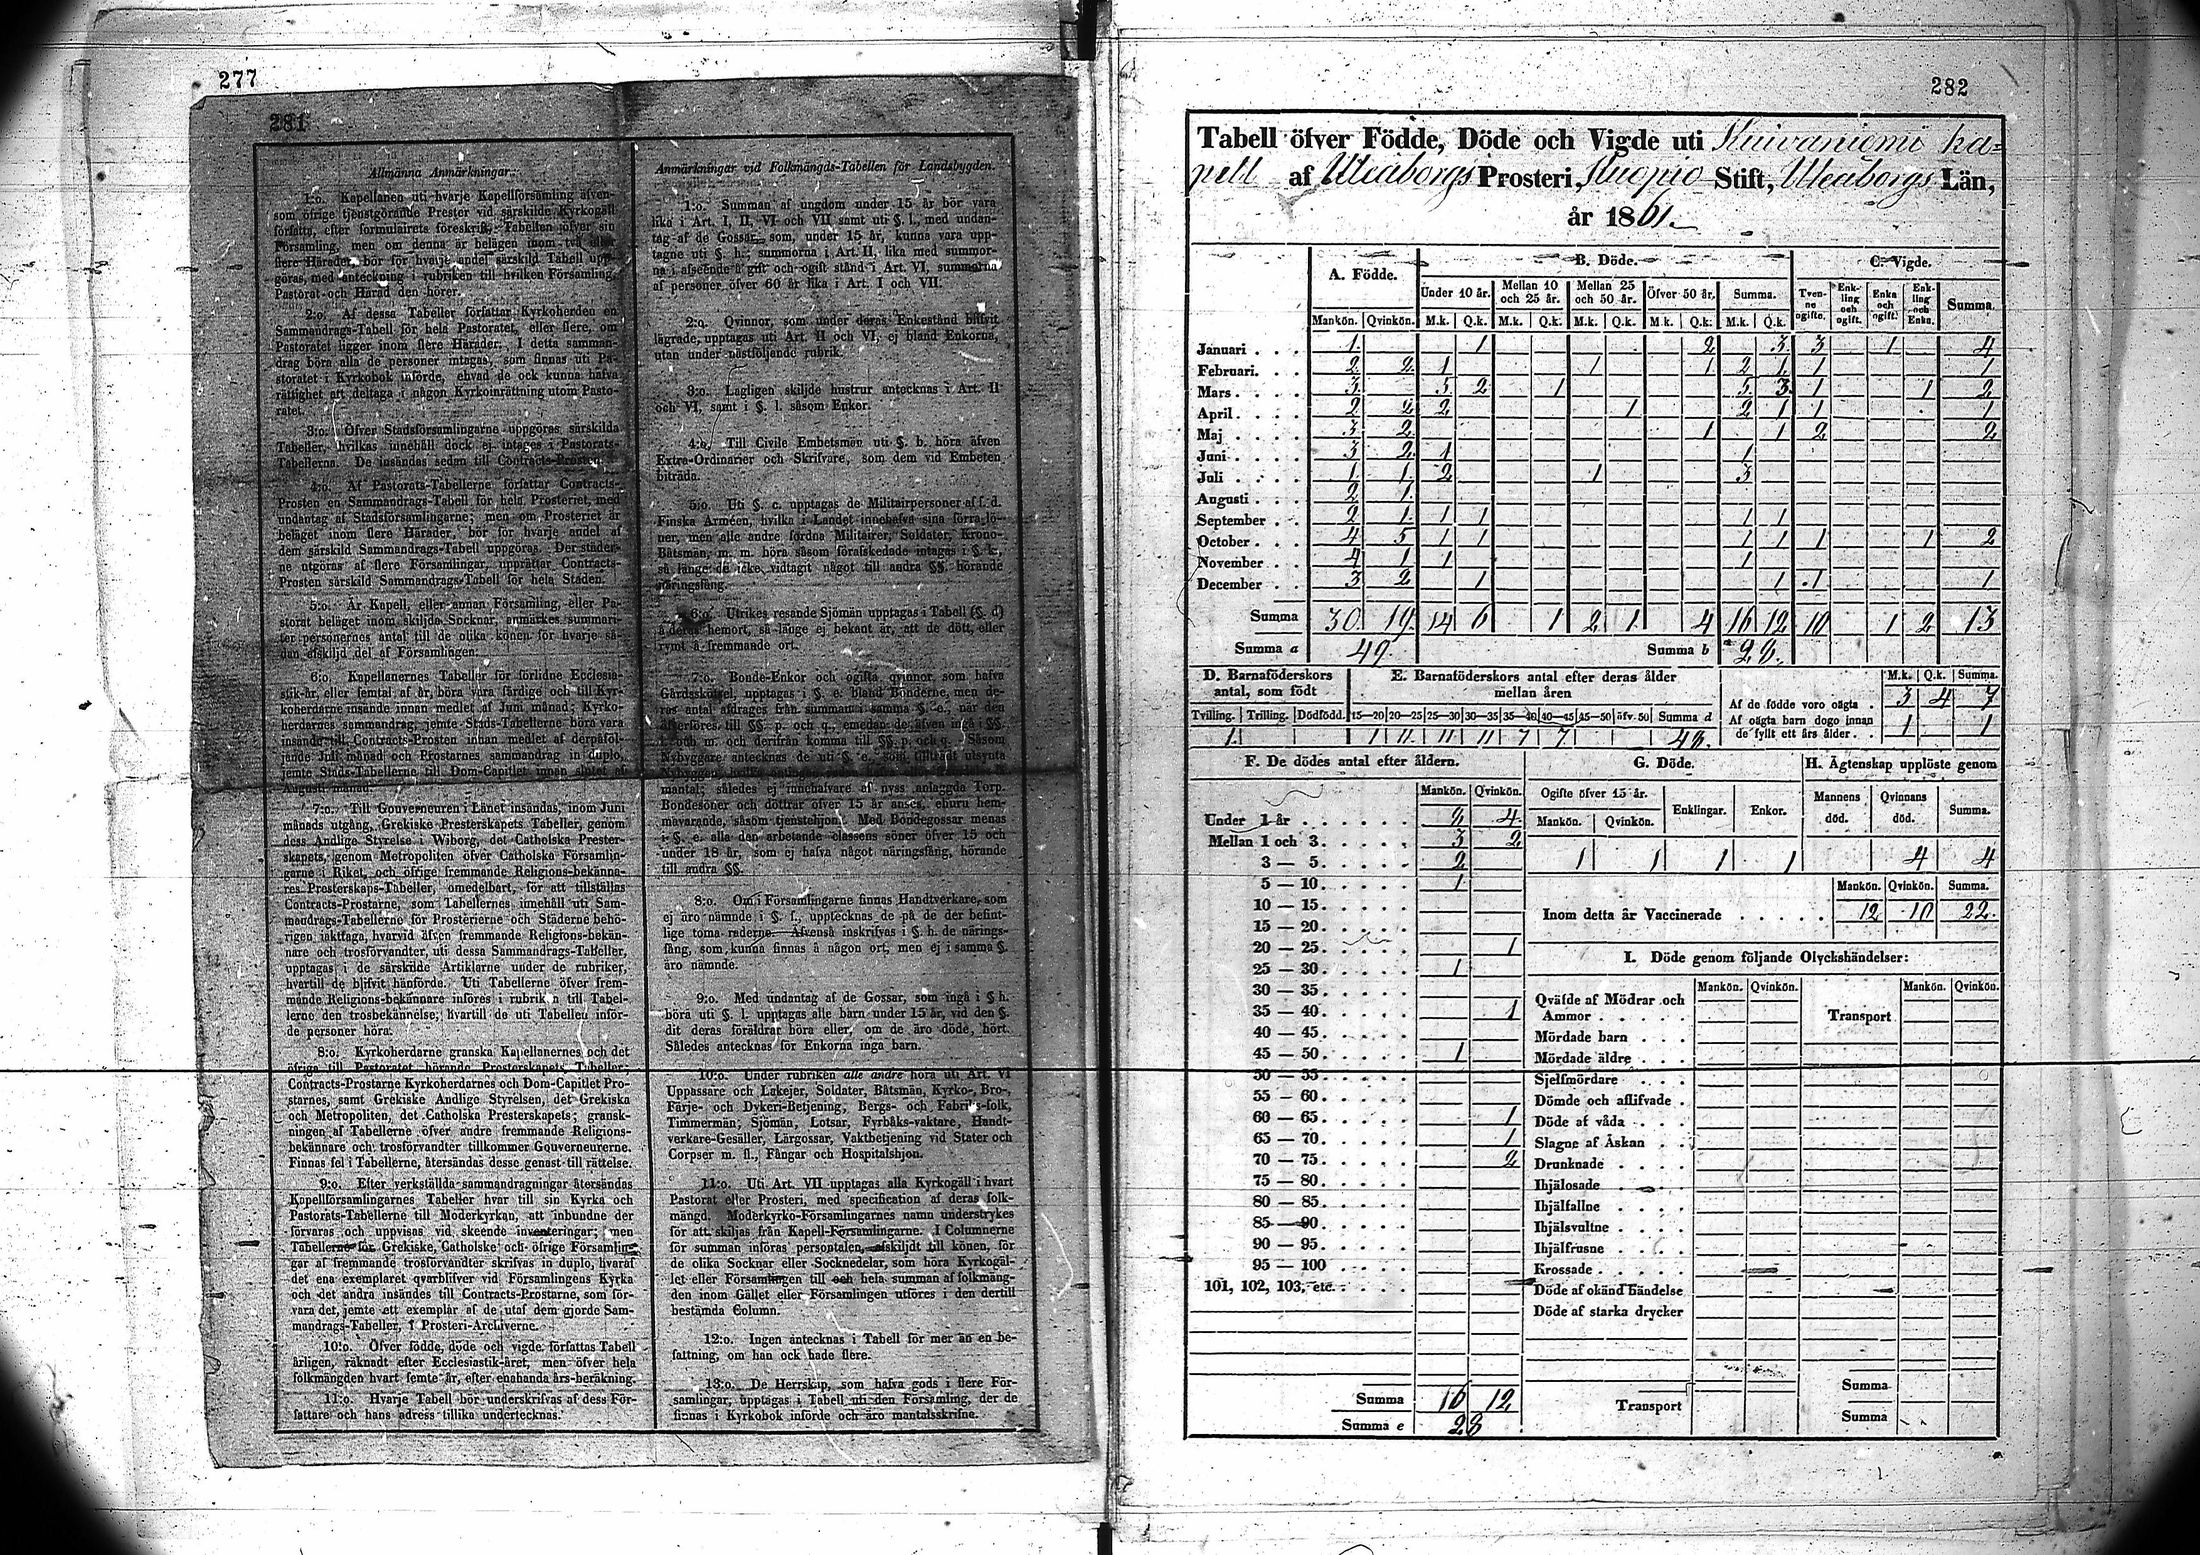 277
281
Allmänna Anmärkningar:
1:o. Kapellanen uti hvarje Kapellförsamling äfven-
som öfrige tjenstgörande Prester vid särskilde Kyrkogäll
författa, efter formulairets föreskrift, Tabellen öfver sin
Församling, men om denna är belägen inom två eller
flere Härader, bör för hvarje andel särskild Tabell upp-
göras, med anteckning i rubriken till hvilken Församling,
Pastorat och Härad den hörer.
2:o. Af dessa Tabeller författar Kyrkoherden en
Sammandrags-Tabell för hela Pastoratet, eller flere, om
Pastoratet ligger inom flere Härader. I detta samman-
drag böra alla de personer intagas, som finnas uti Pa-
storatet i Kyrkobok införde, ehvad de ock kunna hafva
rättighet att deltaga i någon Kyrkoinrättning utom Pasto-
ratet.
3:o. Öfver Stadsförsamlingarne uppgöras särskilda
Tabeller, hvilkas innehåll dock ej intages i Pastorats-
Tabellerna. De insändas sedan till Contracts-Prosten.
4:o. Af Pastorats-Tabellerne författar Contracts-
Prosten en Sammandrags-Tabell för hela Prosteriet, med
undantag af Stadsförsamlingarne; men om Prosteriet är
beläget inom flere Härader, bör för hvarje andel af
dem särskild Sammandrags-Tabell uppgöras. Der städer-
ne utgöras af flere Församlingar, upprättar Contracts-
Prosten särskild Sammandrags-Tabell för hela Staden.
5:o. Är Kapell, eller annan Församling, eller Pa-
storat beläget inom skiljda Socknar, anmärkes summari-
ter personernes antal till de olika könen för hvarje så-
dan afskiljd del af Församlingen.
6:o. Kapellanernes Tabeller för förlidne Ecclesia-
stik-år, eller femtal af år, böra vara färdige och till Kyr-
koherdarne insände innan medlet af Juni månad; Kyrko-
herdarnes sammandrag jemte Stads-Tabellerne böra vara
insände till Contracts-Prosten innan medlet af derpåföl-
jande Juli månad och Prostarnes sammandrag in duplo,
jemte Stads-Tabellerne till Dom-Capitlet innan slutet af
Augusti månad.
7:o. Till Gouverneuren i Länet insändas, inom Juni
månads utgång, Grekiske Presterskapets Tabeller, genom
dess Andlige Styrelse i Wiborg, det Catholska Prester-
skapets, genom Metropoliten öfver Catholska Församlin-
garne i Riket, och öfrige fremmande Religions-bekänna-
res Presterskaps-Tabeller, omedelbart, för att tillställas
Contracts-Prostarne, som Tabellernes innehåll uti Sam-
mandrags-Tabellerne för Prosterierne och Städerne behö-
rigen iakttaga, hvarvid äfven fremmande Religions-bekän-
nare och trosförvandter, uti dessa Sammandrags-Tabeller,
upptagas i de särskilde Artiklarne under de rubriker,
hvartill de blifvit hänförde. Uti Tabellerne öfver frem-
mande Religions-bekännare införes i rubriken till Tabel-
lerne den trosbekännelse, hvartill de uti Tabellen inför-
de personer höra.
8:o. Kyrkoherdarne granska Kapellanernes och det
öfriga till Pastoratet hörande Presterskapets Tabeller;
Contracts-Prostarne Kyrkoherdarnes och Dom-Capitlet Pro-
starnes, samt Grekiske Andlige Styrelsen, det Grekiska
och Metropoliten, det Catholska Presterskapets; gransk-
ningen af Tabellerne öfver andre fremmande Religions-
bekännare och trosförvandter tillkommer Gouverneurerne.
Finnas fel i Tabellerne, återsändas desse genast till rättelse.
9:o. Efter verkställda sammandragningar återsändas
Kapellförsamlingarnes Tabeller hvar till sin Kyrka och
Pastorats-Tabellerne till Moderkyrkan, att inbundne der
förvaras och uppvisas vid skeende inventeringar; men
Tabellerne för Grekiske, Catholske och öfrige Församlin-
gar af fremmande trosförvandter skrifvas in duplo, hvaraf
det ena exemplaret qvarblifver vid Församlingens Kyrka
och det andra insändes till Contracts-Prostarne, som för-
vara det, jemte ett exemplar af de utaf dem gjorde Sam-
mandrags-Tabeller, i Prosteri-Archiverne.
10:o. Öfver födde, döde och vigde författas Tabell
årligen, räknadt efter Ecclesiastik-året, men öfver hela
folkmängden hvart femte år, efter enahanda års-beräkning.
11:o. Hvarje Tabell bör underskrifvas af dess För-
fattare och hans adress tillika undertecknas.
Anmärkningar vid Folkmängds-Tabellen för Landsbygden.
1:o. Summan af ungdom under 15 år bör vara
lika i Art. I, II, VI och VII samt uti §. l., med undan-
tag af de Gossar, som, under 15 år, kunna vara upp-
tagne uti §. h.; summorna i Art. II, lika med summor-
na i afseende å gift och ogift stånd i Art. VI, summorna
af personer öfver 60 år lika i Art. I och VII.
2:o. Qvinnor, som under deras Enkestånd blifvit
lägrade, upptagas uti Art. II och VI, ej bland Enkorna,
utan under nästföljande rubrik.
3:o. Lagligen skiljde hustrur antecknas i Art. II
och VI, samt i §. l. såsom Enkor.
4:o. Till Civile Embetsmän uti §. b. höra äfven
Extra-Ordinarier och Skrifvare, som dem vid Embeten
biträda.
5:o. Uti §. c. upptagas de Militairpersoner af f. d.
Finska Arméen, hvilka i Landet innehafva sina förra lö-
ner, men alle andre fordna Militairer, Soldater, Krono-
Båtsmän, m. m. höra såsom förafskedade intagas i §. k.,
så länge de icke vidtagit något till andra §§. hörande
näringsfång.
6:o. Utrikes resande Sjömän upptagas i Tabell (§. d)
å deras hemort, så länge ej bekant är, att de dött, eller
rymt å fremmande ort.
7:o. Bonde-Enkor och ogifta qvinnor, som hafva
Gårdsskötsel, upptagas i §. e. bland Bönderne, men de-
ras antal afdrages från summan i samma §. e., när den
återföres till §§. p. och q., emedan de äfven ingå i §§.
l. och m. och derifrån komma till §§. p. och q. Såsom
Nybyggare antecknas de uti §. e., som tillträdt utsynta
mantal; således ej innehafvare af nyss anlaggda Torp.
Bondesöner och döttrar öfver 15 år anses, ehuru hem-
mavarande, såsom tjenstehjon. Med Bondegossar menas
i §. e. alle den arbetande classens söner öfver 15 och
under 18 år, som ej hafva något näringsfång, hörande
till andra §§.
8:o. Om i Församlingarne finnas Handtverkare, som
ej äro nämnde i §. f., upptecknas de på de der befint-
lige toma raderne. Äfvenså inskrifvas i §. h. de närings-
fång, som kunna finnas å någon ort, men ej i samma §.
äro nämnde.
9:o. Med undantag af de Gossar, som ingå i § h.
böra uti §. l. upptagas alle barn under 15 år, vid den §.
dit deras föräldrar höra eller, om de äro döde, hört.
Således antecknas för Enkorna inga barn.
10:o. Under rubriken alle andre höra uti Art. VI
Uppassare och Lakejer, Soldater, Båtsmän, Kyrko-, Bro-,
Färje- och Dykeri-Betjening, Bergs- och Fabriks-folk,
Timmermän, Sjömän, Lotsar, Fyrbåks-vaktare, Handt-
verkare-Gesäller, Lärgossar, Vaktbetjening vid Stater och
Corpser m. fl., Fångar och Hospitalshjon.
11:o. Uti Art. VII upptagas alla Kyrkogäll i hvart
Pastorat eller Prosteri, med specification af deras folk-
mängd. Moderkyrko-Församlingarnes namn understrykes
för att skiljas från Kapell-Församlingarne. I Columnerne
för summan införas persontalen, afskiljdt till könen, för
de olika Socknar eller Socknedelar, som höra Kyrkogäl-
let eller Församlingen till och hela summan af folkmäng-
den inom Gället eller Församlingen utföres i den dertill
bestämda Column.
12:o. Ingen antecknas i Tabell för mer än en be-
fattning, om han ock hade flere.
13:o. De Herrskap, som hafva gods i flere För-
samlingar, upptagas i Tabell uti den Församling, der de
finnas i Kyrkobok införde och äro mantalsskrifne.
282
Tabell öfver Födde, Döde och Vigde uti Kuivaniemi ka-
pell af Uleåborgs Prosteri, Kuopio Stift, Uleåborgs Län,
år 1861.
A. Födde. B. Döde. C. Vigde.
Under 10 år. Mellan 10 och 25 år. Mellan 25 och 50 år. Öfver 50 år. Summa. Tvenne ogifte. Enkling och ogift. Enka och ogift. Enkling och Enka. Summa.
Mankön. Qvinkön. M.k. Q.k. M.k. Q.k. M.k. Q.k. M.k. Q.k. M.k. Q.k.
Januari . . . 1 1 2 3 3 1 4
Februari. . . 2 2 1 1 1 2 1 1 1
Mars . . . 3 5 2 1 5 3 1 1 2
April . . . 2 2 2 1 2 1 1 1
Maj . . . 3 2 1 1 2 2
Juni . . . 3 2 1 1
Juli . . . 1 1 2 1 3
Augusti . . . 2 1
September . . 2 1 1 1 1 1
October . . . 4 5 1 1 1 1 1 1 2
November . . 4 1 1 1
December . . 3 2 1 1 1 1
Summa 30 19 14 6 1 2 1 4 16 12 10 1 2 13
Summa a 49. Summa b 28.
D. Barnaföderskors antal, som födt
Tvilling. Trilling. Dödfödd.
1
E. Barnaföderskors antal efter deras ålder
mellan åren
15—20 20—25 25—30 30—35 35—40 40—45 45—50 öfv. 50 Summa d
1 11 11 11 7 7 48.
M.k. Q.k. Summa.
Af de födde voro oägta . 3 4 7
Af oägta barn dogo innan
de fyllt ett års ålder . . 1 1
F. De dödes antal efter åldern.
Mankön. Qvinkön.
Under 1 år . . . . . . 4
Mellan 1 och 3 . . . . . 3 2
3 — 5 . . . . . 2
5 — 10 . . . . . 1
10 — 15 . . . . .
15 — 20 . . . . .
20 — 25 . . . . . 1
25 — 30 . . . . . 1
30 — 35 . . . . .
35 — 40 . . . . . 1
40 — 45 . . . . .
45 — 50 . . . . . 1
50 — 55 . . . . .
55 — 60 . . . . .
60 — 65 . . . . . 1
65 — 70 . . . . . 1
70 — 75 . . . . . 2
75 — 80 . . . . .
80 — 85 . . . . .
85 — 90 . . . . .
90 — 95 . . . . .
95 — 100 . . . .
101, 102, 103, etc. . . . .
Summa 16 12
Summa e 28
G. Döde.
Ogifte öfver 15 år. Enklingar. Enkor.
Mankön. Qvinkön.
1 1 1 1
H. Ägtenskap upplöste genom
Mannens död. Qvinnans död. Summa.
4 4
Mankön. Qvinkön. Summa.
Inom detta år Vaccinerade . . . . . 12 10 22.
I. Döde genom följande Olyckshändelser:
Mankön. Qvinkön. Mankön. Qvinkön.
Qväfde af Mödrar och
Ammor . . . . . Transport
Mördade barn . . .
Mördade äldre . . .
Sjelfmördare . . .
Dömde och aflifvade .
Döde af våda . . .
Slagne af Åskan . .
Drunknade . . . .
Ihjälosade . . . .
Ihjälfallne . . . .
Ihjälsvultne . . . .
Ihjälfrusne . . . .
Krossade . . . . .
Döde af okänd händelse
Döde af starka drycker
Summa
Transport
Summa